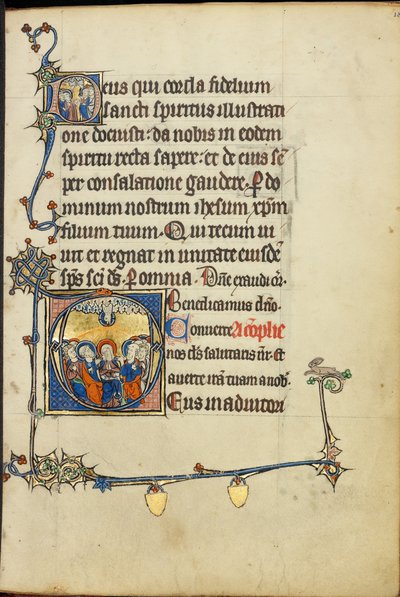 Deus qui corda fidelium
sancti spiritus illustrati
one docuisti· da nobis in eodem
spiritu recta sapere· et de eius sē
per consalatione gaudere. P do
minum nostrum ihesum xp̄m
filium tuum. Qui tecum ui
uit et regnat in unitate eiusdē
sp̄s sc̄i d̄s P omnia. Dn̄e exaudi or̄.
Benedicamus dn̄o.
Conuerte A cōplie
nos d̄s salutaris n̄r· Et
auerte irā tuam a nob̄.
Deus in adiutori